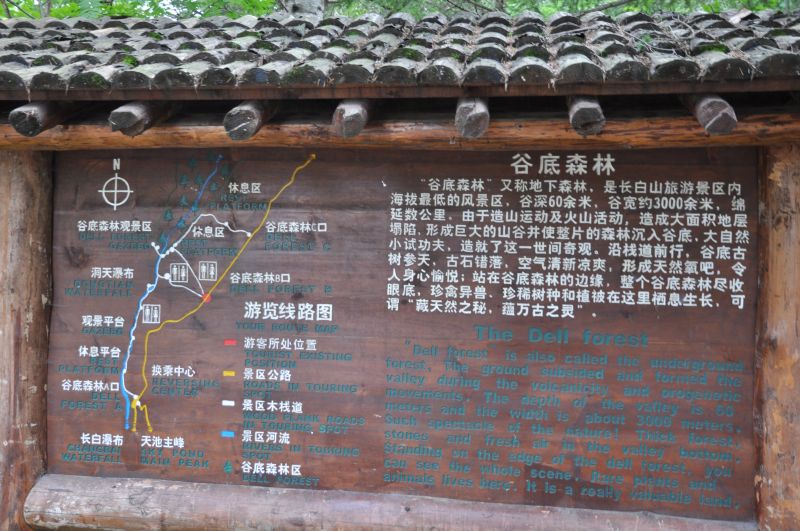 N
休息区
REST
PLATFORM
谷底森林观景区
DELL FOREST
GAZEBO
休息区
REST
PLATFORM
谷底森林C口
DELL
FOREST C
洞天瀑布
DONGTIAN
WATERFALL
谷底森林B口
DELL FOREST B
观景平台
GAZEBO
休息平台
REST
PLATFORM
谷底森林A口
DELL
FOREST A
换乘中心
REVERSING
CENTER
长白瀑布
CHANGBAI
WATERFALL
天池主峰
SKY POND
MAIN PEAK
游览线路图
YOUR ROUTE MAP
游客所处位置
TOURIST EXISTING
POSITION
景区公路
ROADS IN TOURING
SPOT
景区木栈道
WOOD PLANK ROADS
IN TOURING SPOT
景区河流
RIVERS IN TOURING
SPOT
谷底森林区
DELL FOREST
谷底森林
“谷底森林”又称地下森林，是长白山旅游景区内
海拔最低的风景区，谷深60余米，谷宽约3000余米，绵
延数公里。由于造山运动及火山活动，造成大面积地层
塌陷，形成巨大的山谷并使整片的森林沉入谷底，大自然
小试功夫，造就了这一世间奇观。沿栈道前行，谷底古
树参天，古石错落，空气清新凉爽，形成天然氧吧，令
人身心愉悦；站在谷底森林的边缘，整个谷底森林尽收
眼底，珍禽异兽、珍稀树种和植被在这里栖息生长，可
谓“藏天然之秘，蕴万古之灵”。
The Dell forest
"Dell forest" is also called the underground
forest. The ground subsided and formed the
valley during the volcanicity and orogenetic
movements. The depth of the valley is 60
meters and the width is about 3000 meters.
Such spectacle of the nature! Thick forest,
stones and fresh air in the valley bottom.
Standing on the edge of the dell forest, you
can see the whole scene. Rare plants and
animals lives here. It is a really valuable land.